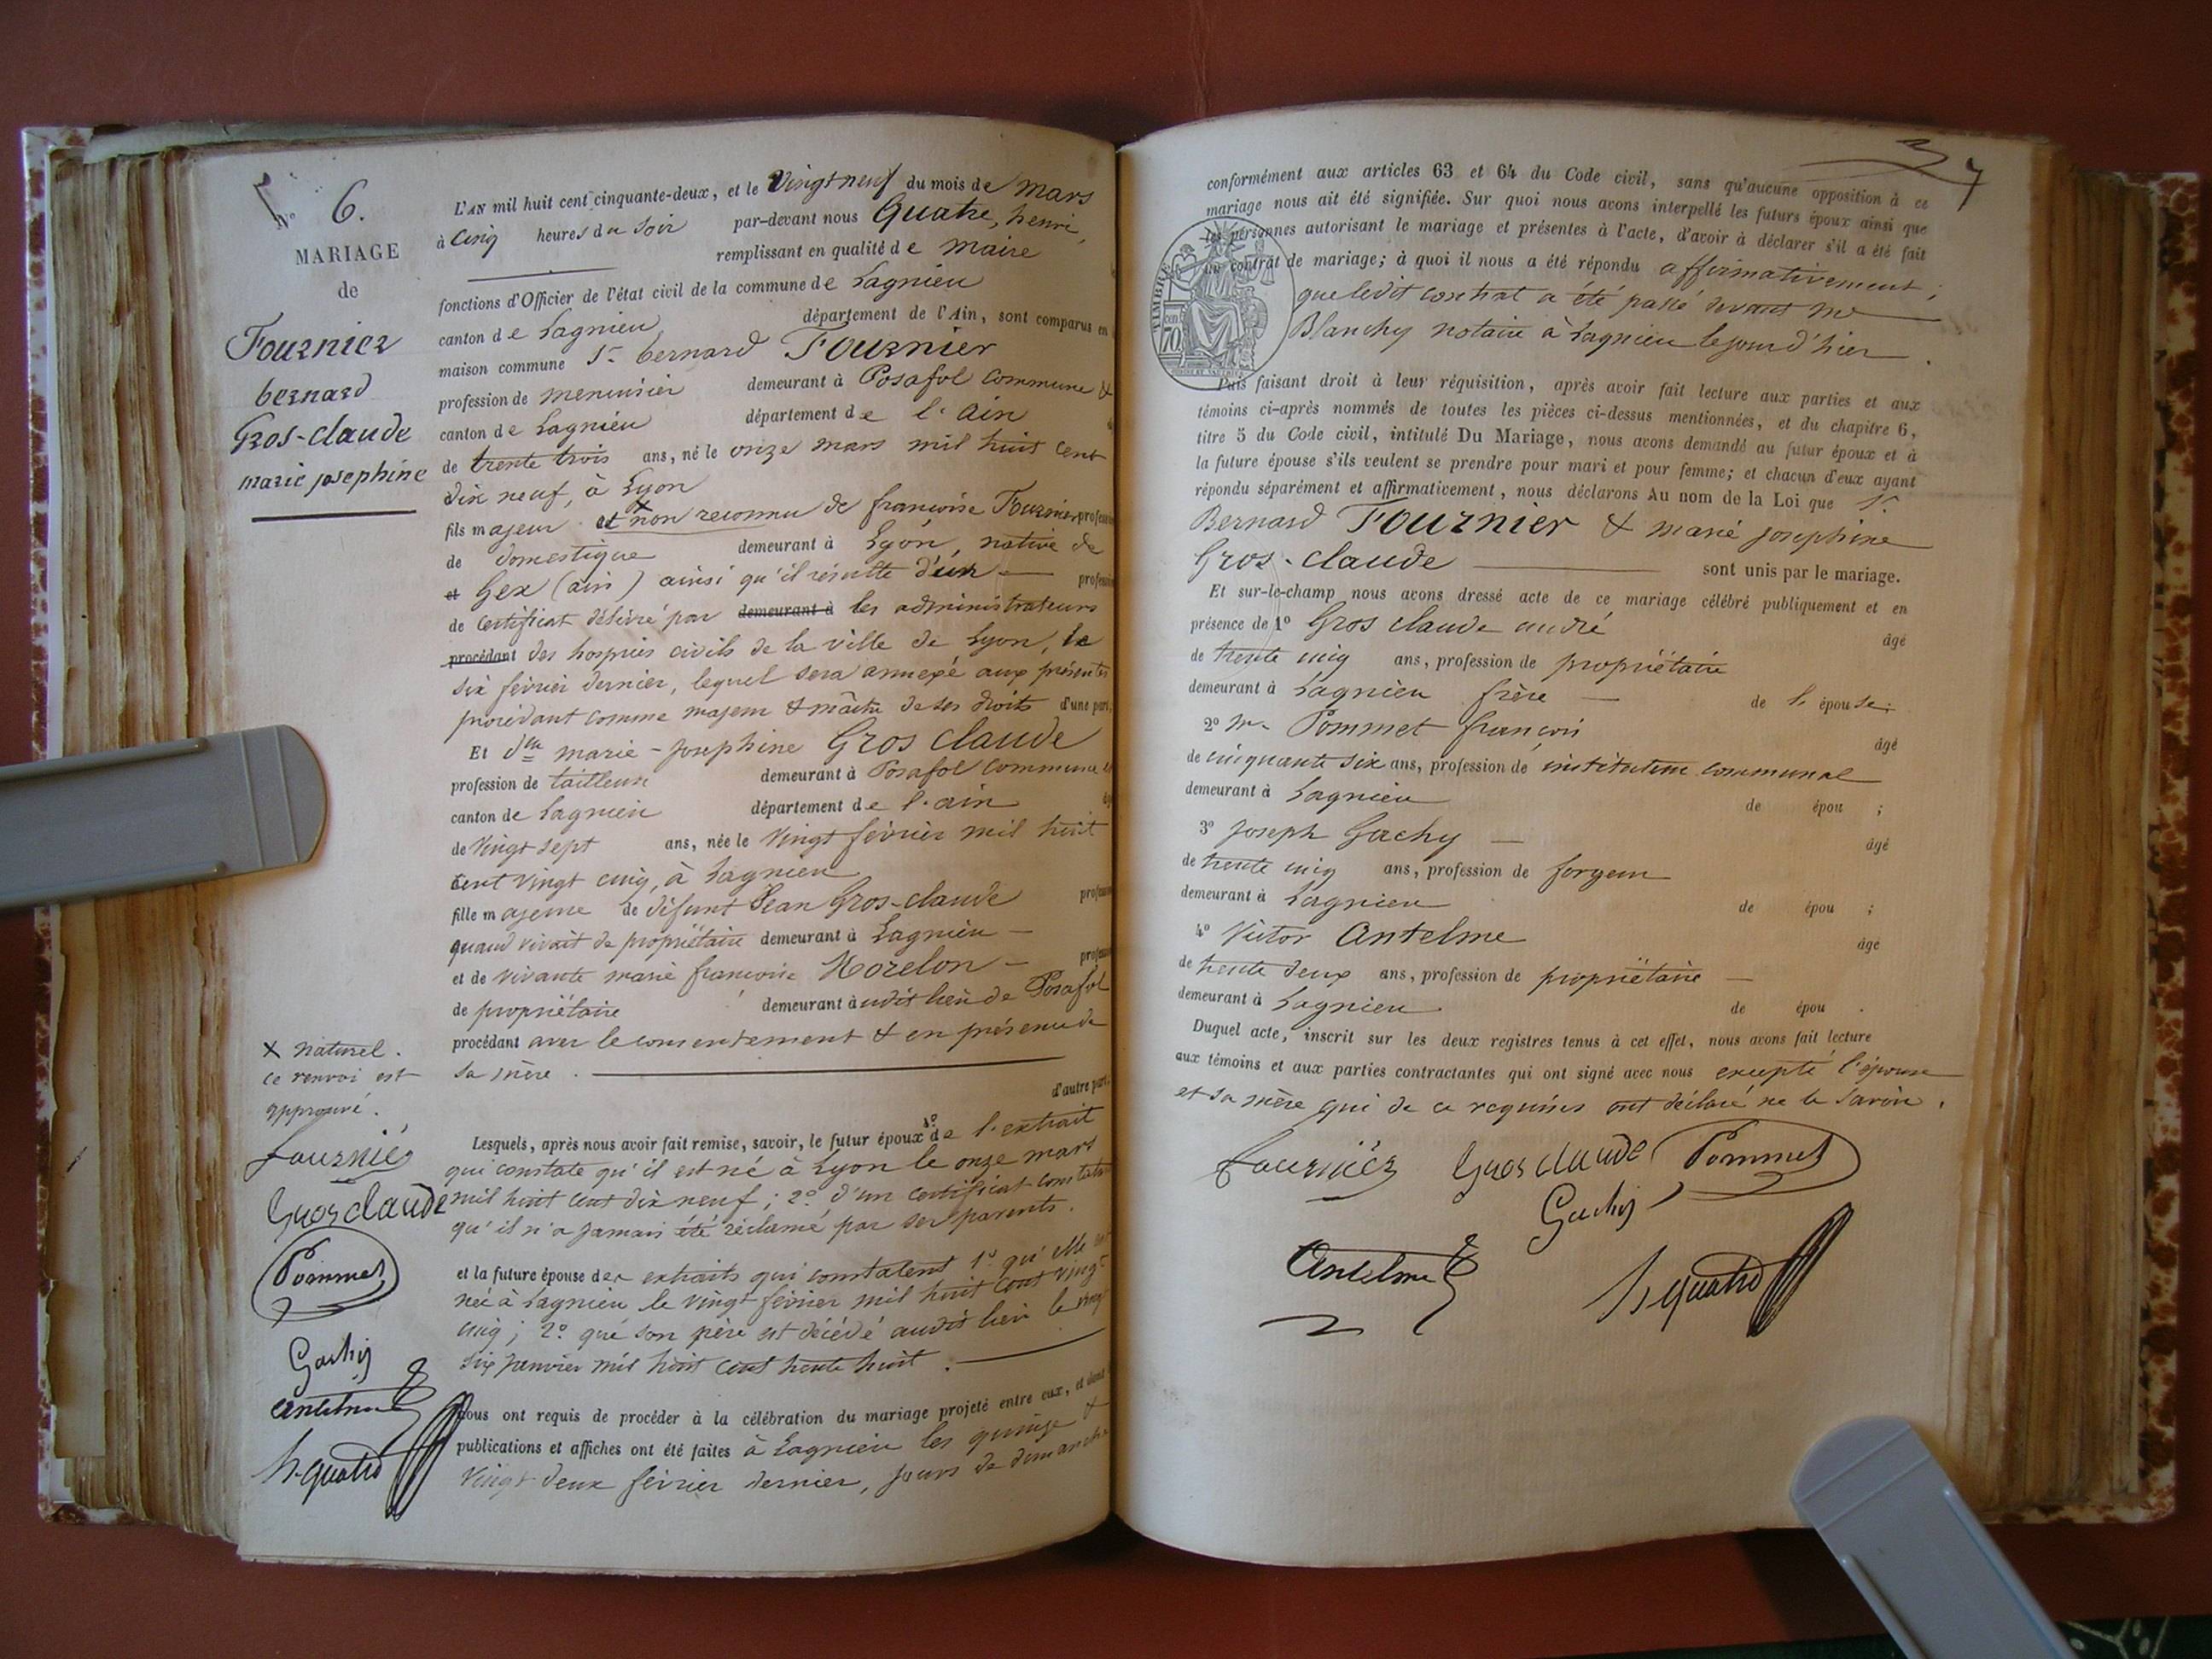 N° 6.
MARIAGE
de
Fournier
bernard
Gros-claude
marie josephine
L'AN mil huit cent cinquante-deux, et le Vingt neuf du mois de mars
à Cinq heures du soir par-devant nous Quatre, henri,
remplissant en qualité de maire
fonctions d'Officier de l'état civil de la commune de Lagnieu
canton de Lagnieu département de l'Ain, sont comparus en
maison commune Sr bernard Fournier
profession de menuisier demeurant à Posafol commune &
canton de Lagnieu département de l'ain
de trente trois ans, né le onze mars mil huit cent
dix neuf, à Lyon
fils majeur et x non reconnu de francoise Fournier profession
de domestique demeurant à Lyon, native de
et Gex (ain) ainsi qu'il résulte d'un profession
de certificat délivré par demeurant à les administrateurs
procédant des hospices civils de la ville de Lyon, le
six février dernier, lequel sera annexé aux présentes
procédant comme majeur & maître de ses droits d'une part,
Et dlle marie-josephine Gros claude
profession de tailleuse demeurant à Posafol commune &
canton de Lagnieu département de l'ain
de Vingt sept ans, née le Vingt février mil huit
cent vingt cinq, à Lagnieu
fille majeure de défunt Jean Gros-claude profession
quand vivait de propriétaire demeurant à Lagnieu
et de vivante marie francoise Morelon profession
de propriétaire demeurant audit lieu de Posafol
procédant avec le consentement & en présence de
sa mère.
d'autre part.
x naturel.
ce renvoi est
approuvé.
fournier
Gros claude
Pommet
Gachy
antelme
h. quatre
Lesquels, après nous avoir fait remise, savoir, le futur époux 1° de l'extrait
qui constate qu'il est né à Lyon le onze mars
mil huit cent dix neuf; 2° d'un certificat constatant
qu'il n'a jamais été réclamé par ses parents.
et la future épouse des extraits qui constatent 1° qu'elle est
née à Lagnieu le vingt février mil huit cent vingt
cinq; 2° que son père est décédé audit lieu le vingt
six janvier mil huit cent trente huit.
nous ont requis de procéder à la célébration du mariage projeté entre eux, et dont
publications et affiches ont été faites à Lagnieu les quinze &
Vingt deux février dernier, jours de dimanche
7
conformément aux articles 63 et 64 du Code civil, sans qu'aucune opposition à ce
mariage nous ait été signifiée. Sur quoi nous avons interpellé les futurs époux ainsi que
les personnes autorisant le mariage et présentes à l'acte, d'avoir à déclarer s'il a été fait
un contrat de mariage; à quoi il nous a été répondu affirmativement;
que ledit contrat a été passé devant me
Blanchy notaire à Lagnieu le jour d'hier.
TIMBRE
70
Puis faisant droit à leur réquisition, après avoir fait lecture aux parties et aux
témoins ci-après nommés de toutes les pièces ci-dessus mentionnées, et du chapitre 6,
titre 5 du Code civil, intitulé Du Mariage, nous avons demandé au futur époux et à
la future épouse s'ils veulent se prendre pour mari et pour femme; et chacun d'eux ayant
répondu séparément et affirmativement, nous déclarons Au nom de la Loi que Sr
Bernard Fournier & marie josephine
Gros-claude sont unis par le mariage.
Et sur-le-champ nous avons dressé acte de ce mariage célébré publiquement et en
présence de 1° Gros claude andré âgé
de trente cinq ans, profession de propriétaire
demeurant à Lagnieu frère de l'épouse;
2° Mr Pommet françois âgé
de cinquante six ans, profession de instituteur communal
demeurant à Lagnieu de épou ;
3° Joseph Gachy âgé
de trente cinq ans, profession de forgeur
demeurant à Lagnieu de épou ;
4° Victor Antelme âgé
de trente deux ans, profession de propriétaire
demeurant à Lagnieu de épou .
Duquel acte, inscrit sur les deux registres tenus à cet effet, nous avons fait lecture
aux témoins et aux parties contractantes qui ont signé avec nous excepté l'épouse
et sa mère qui de ce requises ont déclaré ne le savoir.
fournier Gros claude Pommet
Gachy
Antelme h quatre